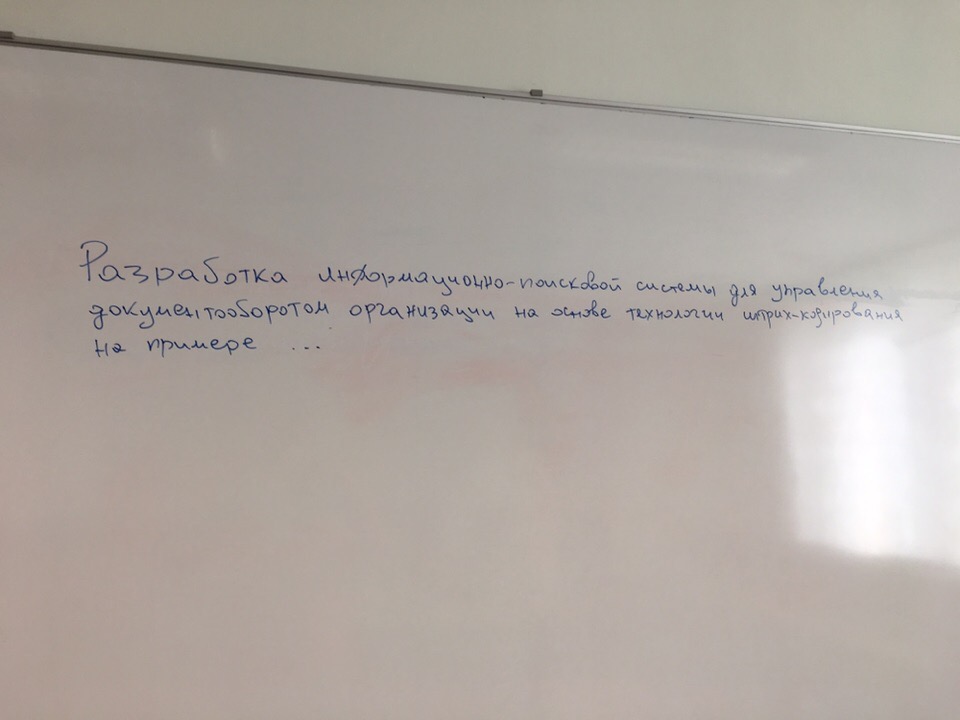 Разработка информационно-поисковой системы для управления
документооборотом организации на основе технологии штрих-кодирования
на примере ...